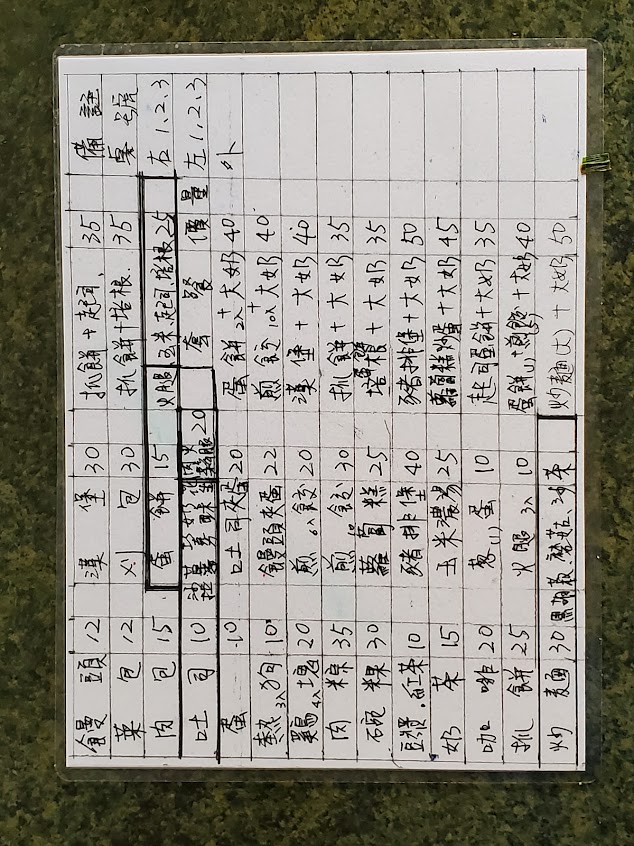 饅頭 12 漢堡 30 抓餅+起司 35 備註
菜包 12 刈包 30 抓餅+培根 35 桌號
肉包 15 蛋餅 15 火腿、玉米、起司、培根 25 右1、2、3
吐司 10 20 套餐 價量 左1、2、3
蛋 10 吐司夾蛋 20 蛋餅2入+大奶 40 外
熱狗3入 10 饅頭夾蛋 22 煎餃10入+大奶 40
雞塊4入 20 煎6入餃 20 漢堡+大奶 40
肉粽 35 煎10餃 30 抓餅+大奶 35
碗粿 30 蘿蔔糕 25 培根+大奶 35
豆漿.紅茶 10 豬排堡 40 豬排堡+大奶 50
奶茶 15 玉米濃湯 25 蘿蔔糕炒蛋+大奶 45
咖啡 20 蔥(1)蛋 10 起司蛋餅+大奶 35
抓餅 25 火腿3入 10 蛋餅(1)+煎餃+大奶 40
炒麵 30 黑胡椒、蘑菇、沙茶 炒麵(大)+大奶 50